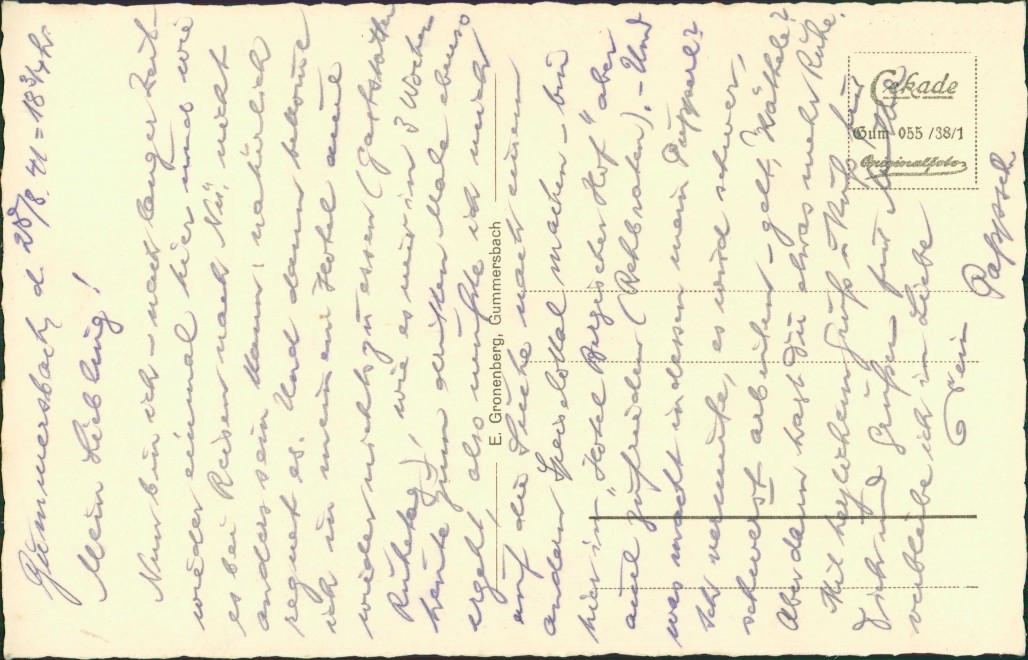 Gummersbach, d. 20/8. 41 = 18 3/4 h.
Mein Liebling!
Nun bin ich – nach langer Zeit –
wieder einmal hier und wie
es bei Reisen nach Nü, nicht
anders sein kann: natürlich
regnet es. Und dann bekomme
ich in mein em Hotel auch
wieder nichts zu essen (Gaststätten
Ruhetag!), wie es mir in 3 Wochen
heute zum dritten Male ebenso
ergeht, also musste ich mich
auf die Suche nach einem
andern Speiselokal machen – bin
hier im "Hotel Bergischer Hof" aber
auch zufrieden (Rehbraten). – Und
was macht indessen mein Pupperl?
Ich vermute, es wird schwer,
schwerst arbeiten – gelt, Käthele?
Aber dann hast Du etwas mehr Ruhe.
Mit herzlichem Gruß u. Kuß für
Dich und Grüßen für
verbleibe ich in Liebe
Dein
Pappsch.
E. Gronenberg, Gummersbach
Cekade
Gum 055/38/1
Originalfoto